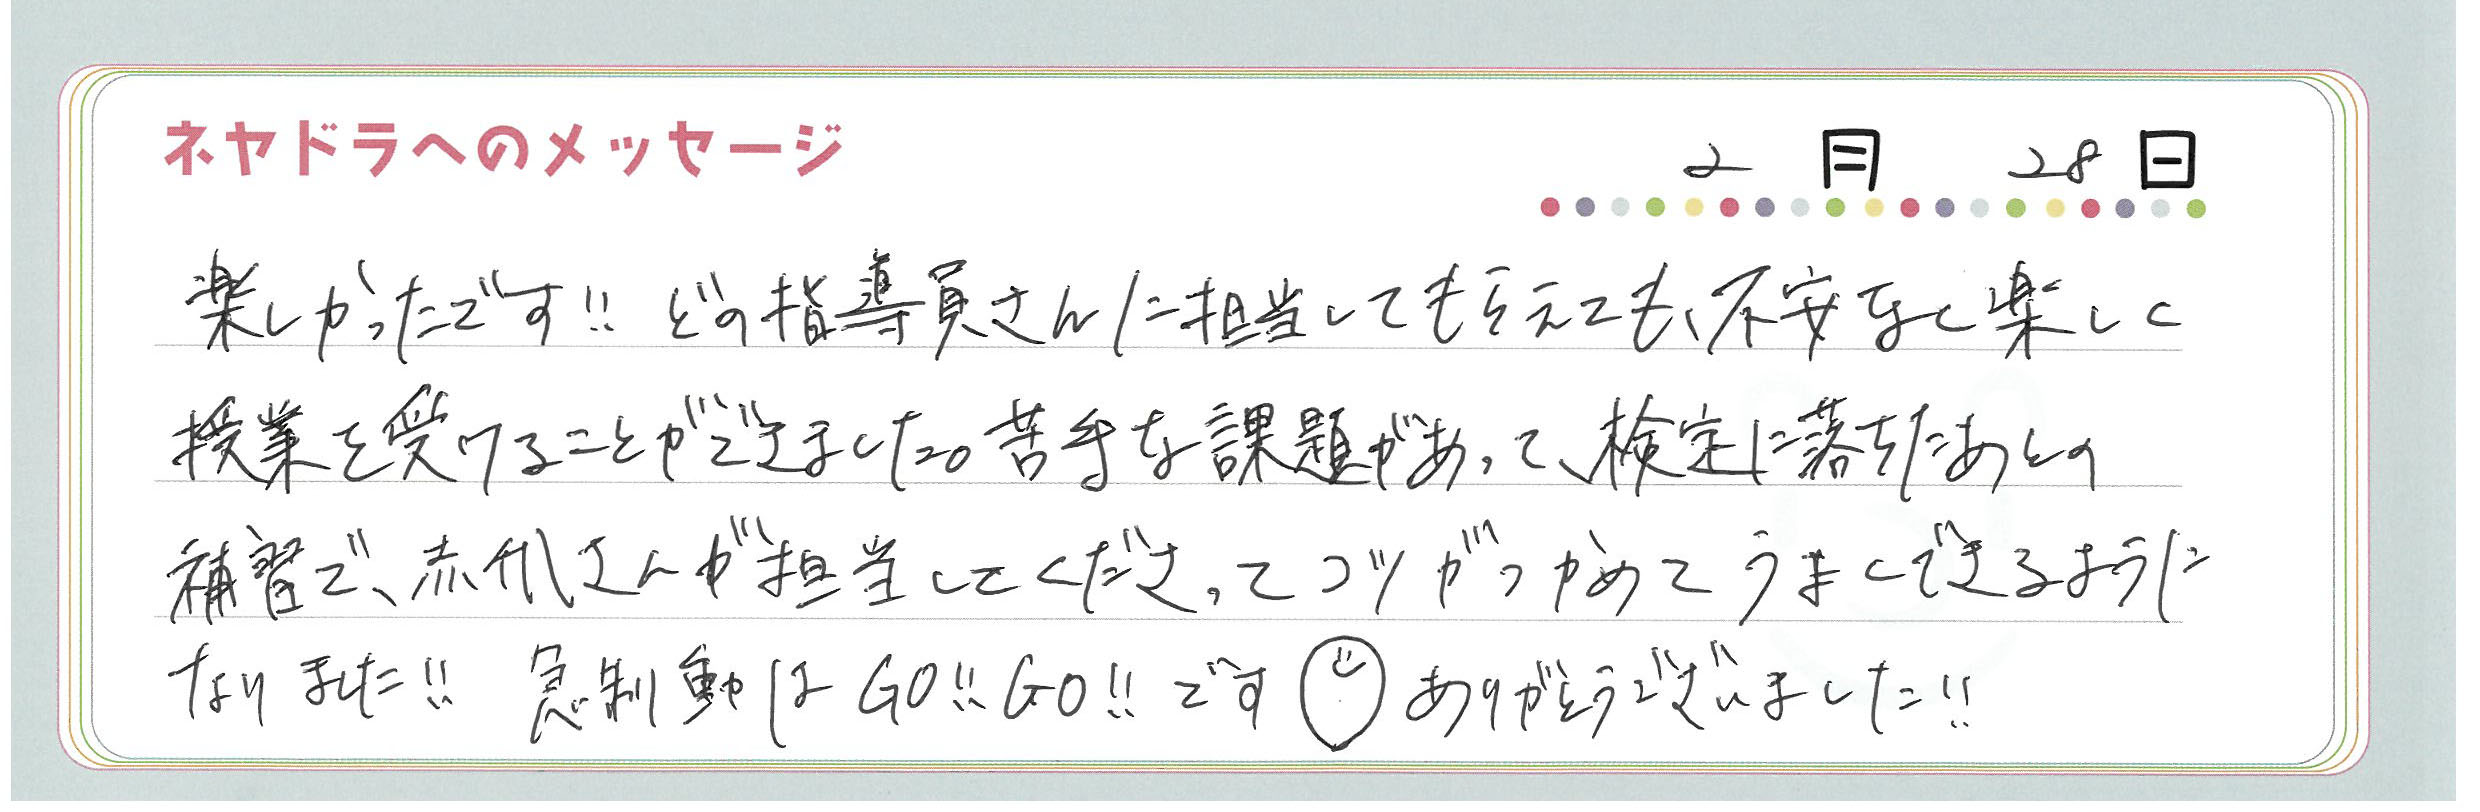 ネヤドラへのメッセージ
2月 28日
楽しかったです!! どの指導員さんに担当してもらえても、不安なく楽しく
授業を受けることができました。苦手な課題があって、検定に落ちたあとの
補習で、赤爪さんが担当してくださってコツがつかめてうまくできるように
なりました!! 急制動はGO!!GO!!です ありがとうございました!!